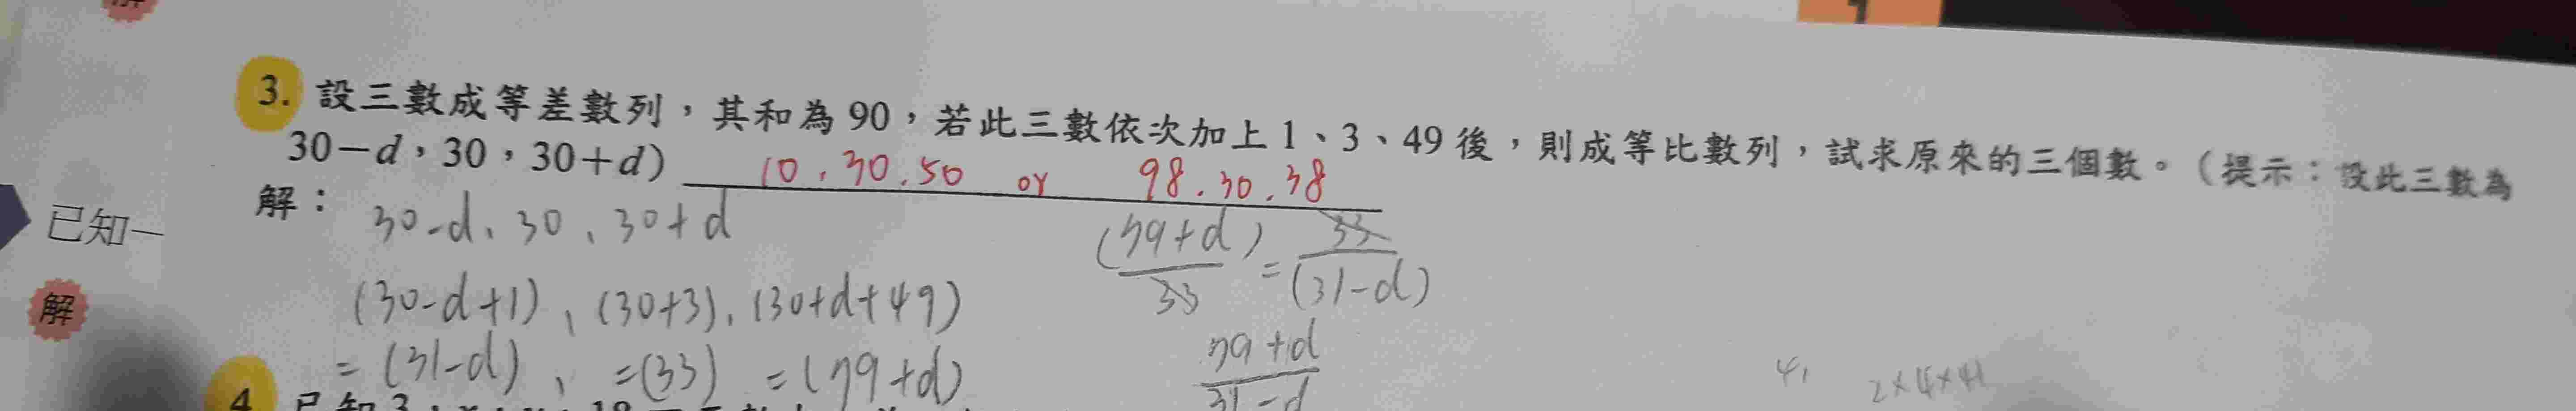 3. 設三數成等差數列，其和為90，若此三數依次加上1、3、49後，則成等比數列，試求原來的三個數。（提示：設此三數為
30－d，30，30＋d） 10.30.50 or 98.30.38
解： 30-d、30、30+d
已知一
(79+d)/33 = 33/(31-d)
解
(30-d+1)、(30+3)、(30+d+49)
=(31-d)、 =(33) =(79+d)
79+d/31-d
2×4×41
4